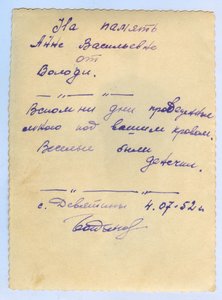 На память
Анне Васильевне
от
Володи.
— „ — „ — „ —
Вспомни дни проведенные
мною под вашим кровом.
Веселые были
денечки.
— „ — „ — „ —
с. Девятины 4.07.52 г.